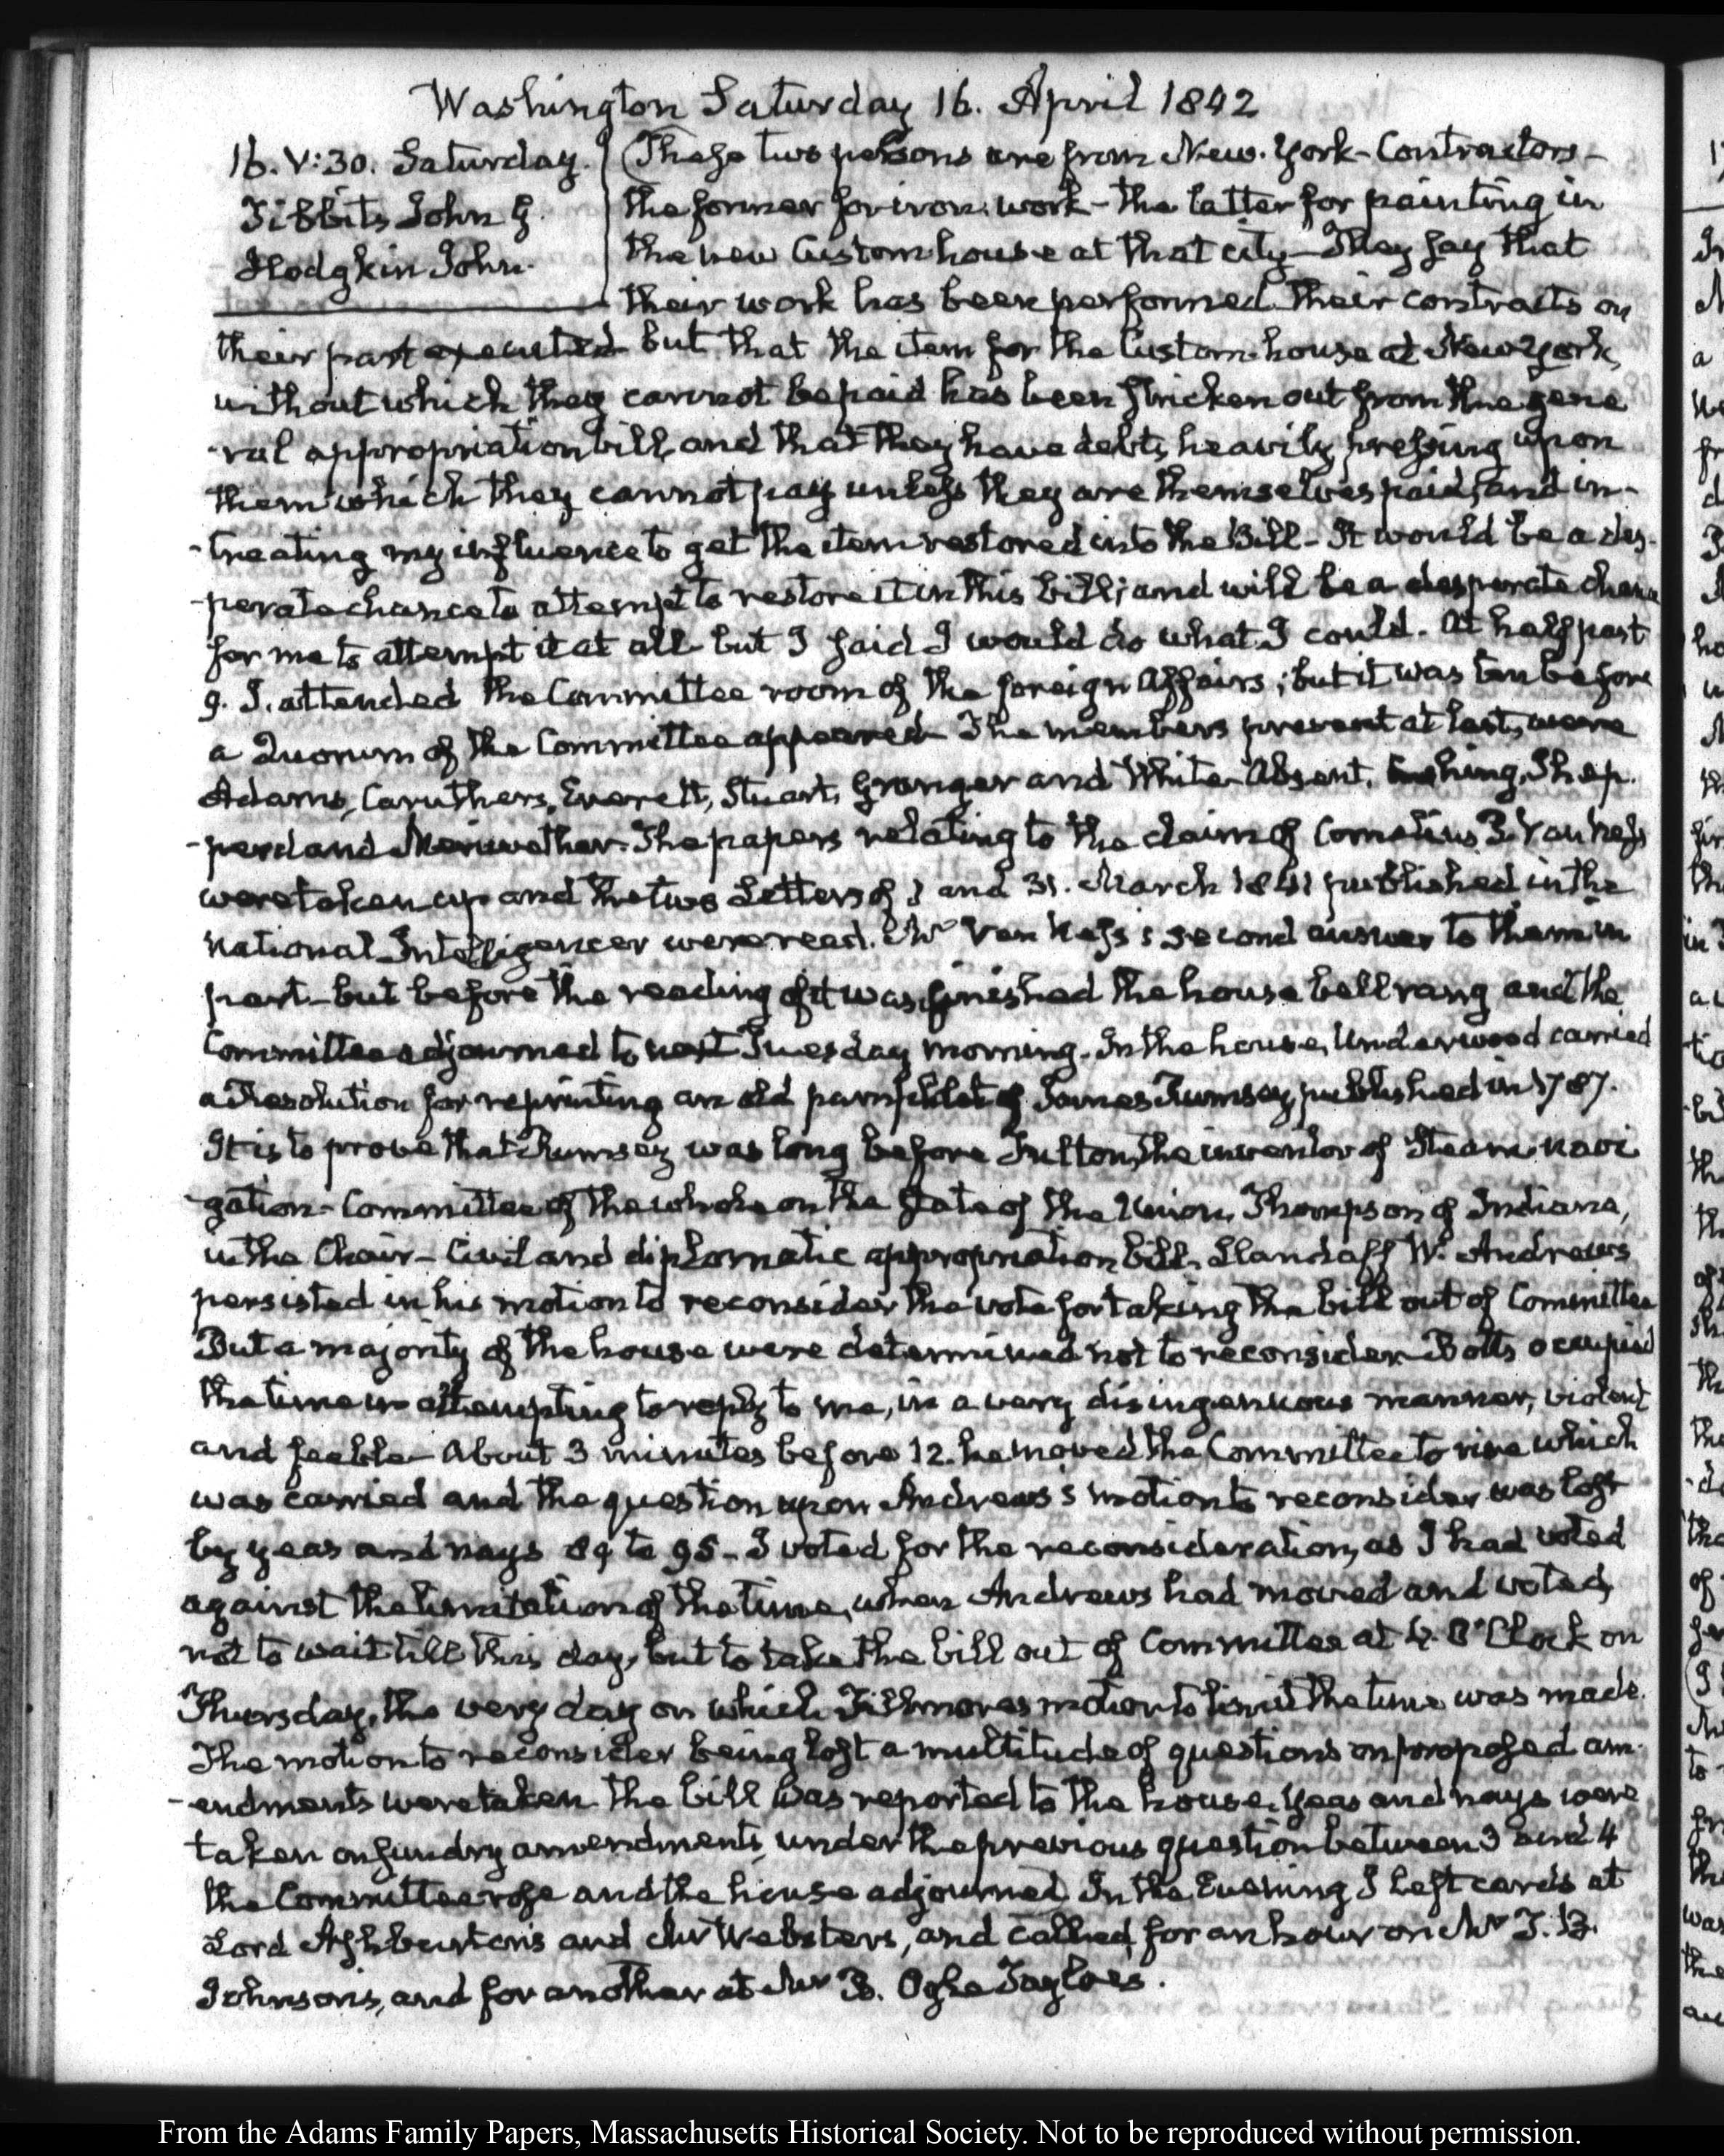 Washington Saturday 16. April 1842
16. V:30. Saturday.
Tibbits John G.
Hodgkin John.
These two persons are from New-York-Contractors-
the former for iron-work- the latter for painting in
the new Custom house at that city- They say that
their work has been performed their contracts on
their part executed but that the item for the Custom-house at New York,
without which they cannot be paid has been stricken out from the gene
-ral appropriation bill, and that they have debts, heavily pressing upon
them which they cannot pay unless they are themselves paid, and in-
-treating my influence to get the item restored into the Bill- It would be a des-
-perate chance to attempt to restore it in this bill; and will be a desperate chance
for me to attempt it at all but I said I would do what I could. At half past
9. I. attended the Committee room of the foreign Affairs; but it was ten before
a Quorum of the Committee appeared The members present at last, were
Adams, Caruthers, Everett, Stuart, Granger and White- Absent. Cushing, Shep-
-perd and Meriwether. The papers relating to the claim of Cornelius P. Van Ness
were taken up and the two Letters of and 31. March 1841 published in the
National Intelligencer were read. Mr Van Ness's second answer to them in
part- but before the reading of it was finished the house bell rang and the
Committee adjourned to next Tuesday morning. In the house, Underwood carried
a Resolution for reprinting an old pamphlet of James Rumsey, published in 1787.
It is to prove that Rumsey was long before Fulton, the inventor of Steam-navi
-gation- Committee of the whole on the state of the Union, Thompson of Indiana,
in the Chair- Civil and diplomatic appropriation bill. Landaff W. Andrews
persisted in his motion to reconsider the vote for taking the bill out of Committee
But a majority of the house were determined not to reconsider- Botts occupied
the time in attempting to reply to me, in a very disingenuous manner, violent
and feeble- About 3 minutes before 12. he moved the Committee to rise which
was carried and the question upon Andrews's motion to reconsider was lost
by yeas and nays 89 to 95- I voted for the reconsideration, as I had voted
against the limitation of the time, when Andrews had moved and voted,
not to wait till this day, but to take the bill out of Committee at 4. O'Clock on
Thursday, the very day on which Fillmores motion to limit the time was made.
The motion to reconsider being lost a multitude of questions on proposed am-
-endments were taken- the bill was reported to the house. Yeas and nays were
taken on sundry amendments, under the previous question between 3 and 4
the Committee rose and the house adjourned. In the Evening I left cards at
Lord Ashburton's and Mr Websters, and called for an hour on Mr T. B.
Johnson's, and for another at Mr B. Ogle Tayloes.
From the Adams Family Papers, Massachusetts Historical Society. Not to be reproduced without permission.